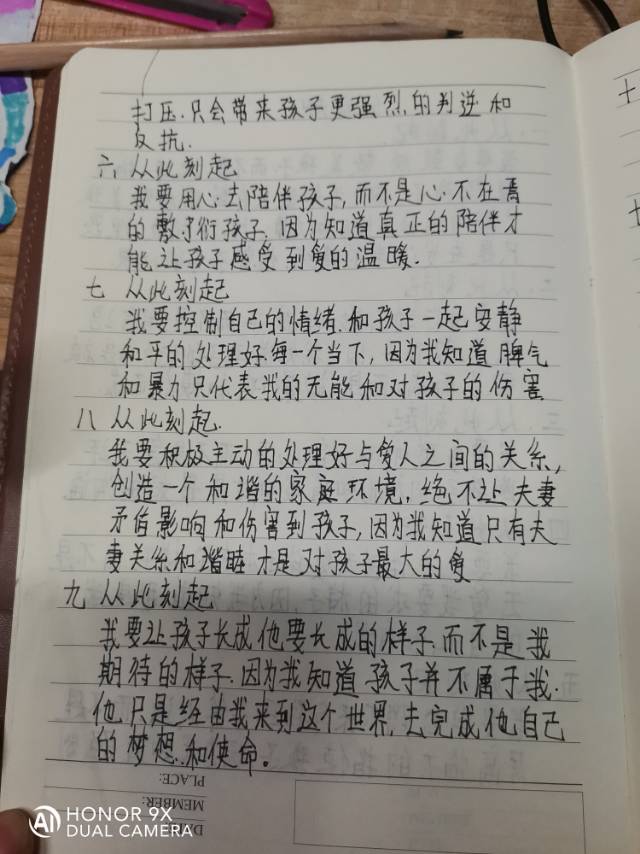 打压.只会带来孩子更强烈.的判逆和
反抗.
六 从此刻起
我要用心.去陪伴孩子,而不是心.不在焉
的敷衍孩子.因为知道真正的陪伴才
能让孩子感受到爱的温暖.
七 从此刻起
我要控制自己的情绪.和孩子一起安静
和平的处理好.每一个当下,因为我知道脾气
和暴力只代表我的无能和对孩子的伤害
八 从此刻起.
我要积极主动的处理好与爱人之间的关系,
创造一个和谐的家庭环境,绝不让夫妻
矛盾影响和伤害到孩子,因为我知道只有夫
妻关系和谐睦才是对孩子最大的爱
九 从此刻起
我要让孩子长成他要长成的样子.而不是我
期待的样子.因为我知道孩子并不属于我.
他只是经由我来到这个世界,去完成他自己
的梦想.和使命。
PLACE:
MEMBER:
十
七
HONOR 9X
AI DUAL CAMERA